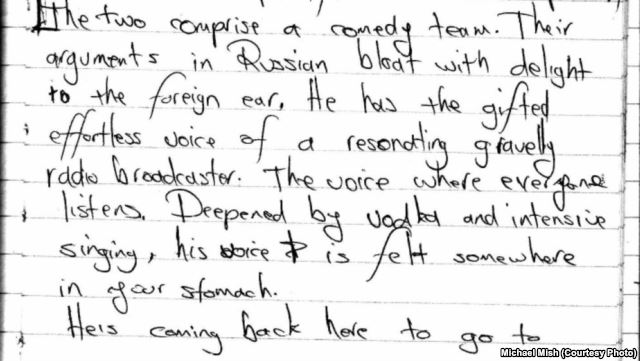 The two comprise a comedy team. Their
arguments in Russian bloat with delight
to the foreign ear. He has the gifted
effortless voice of a resonating gravelly
radio broadcaster. The voice where everyone
listens. Deepened by vodka and intensive
singing, his voice is felt somewhere
in your stomach.
He is coming back here to go to
Michael Mish (Courtesy Photo)